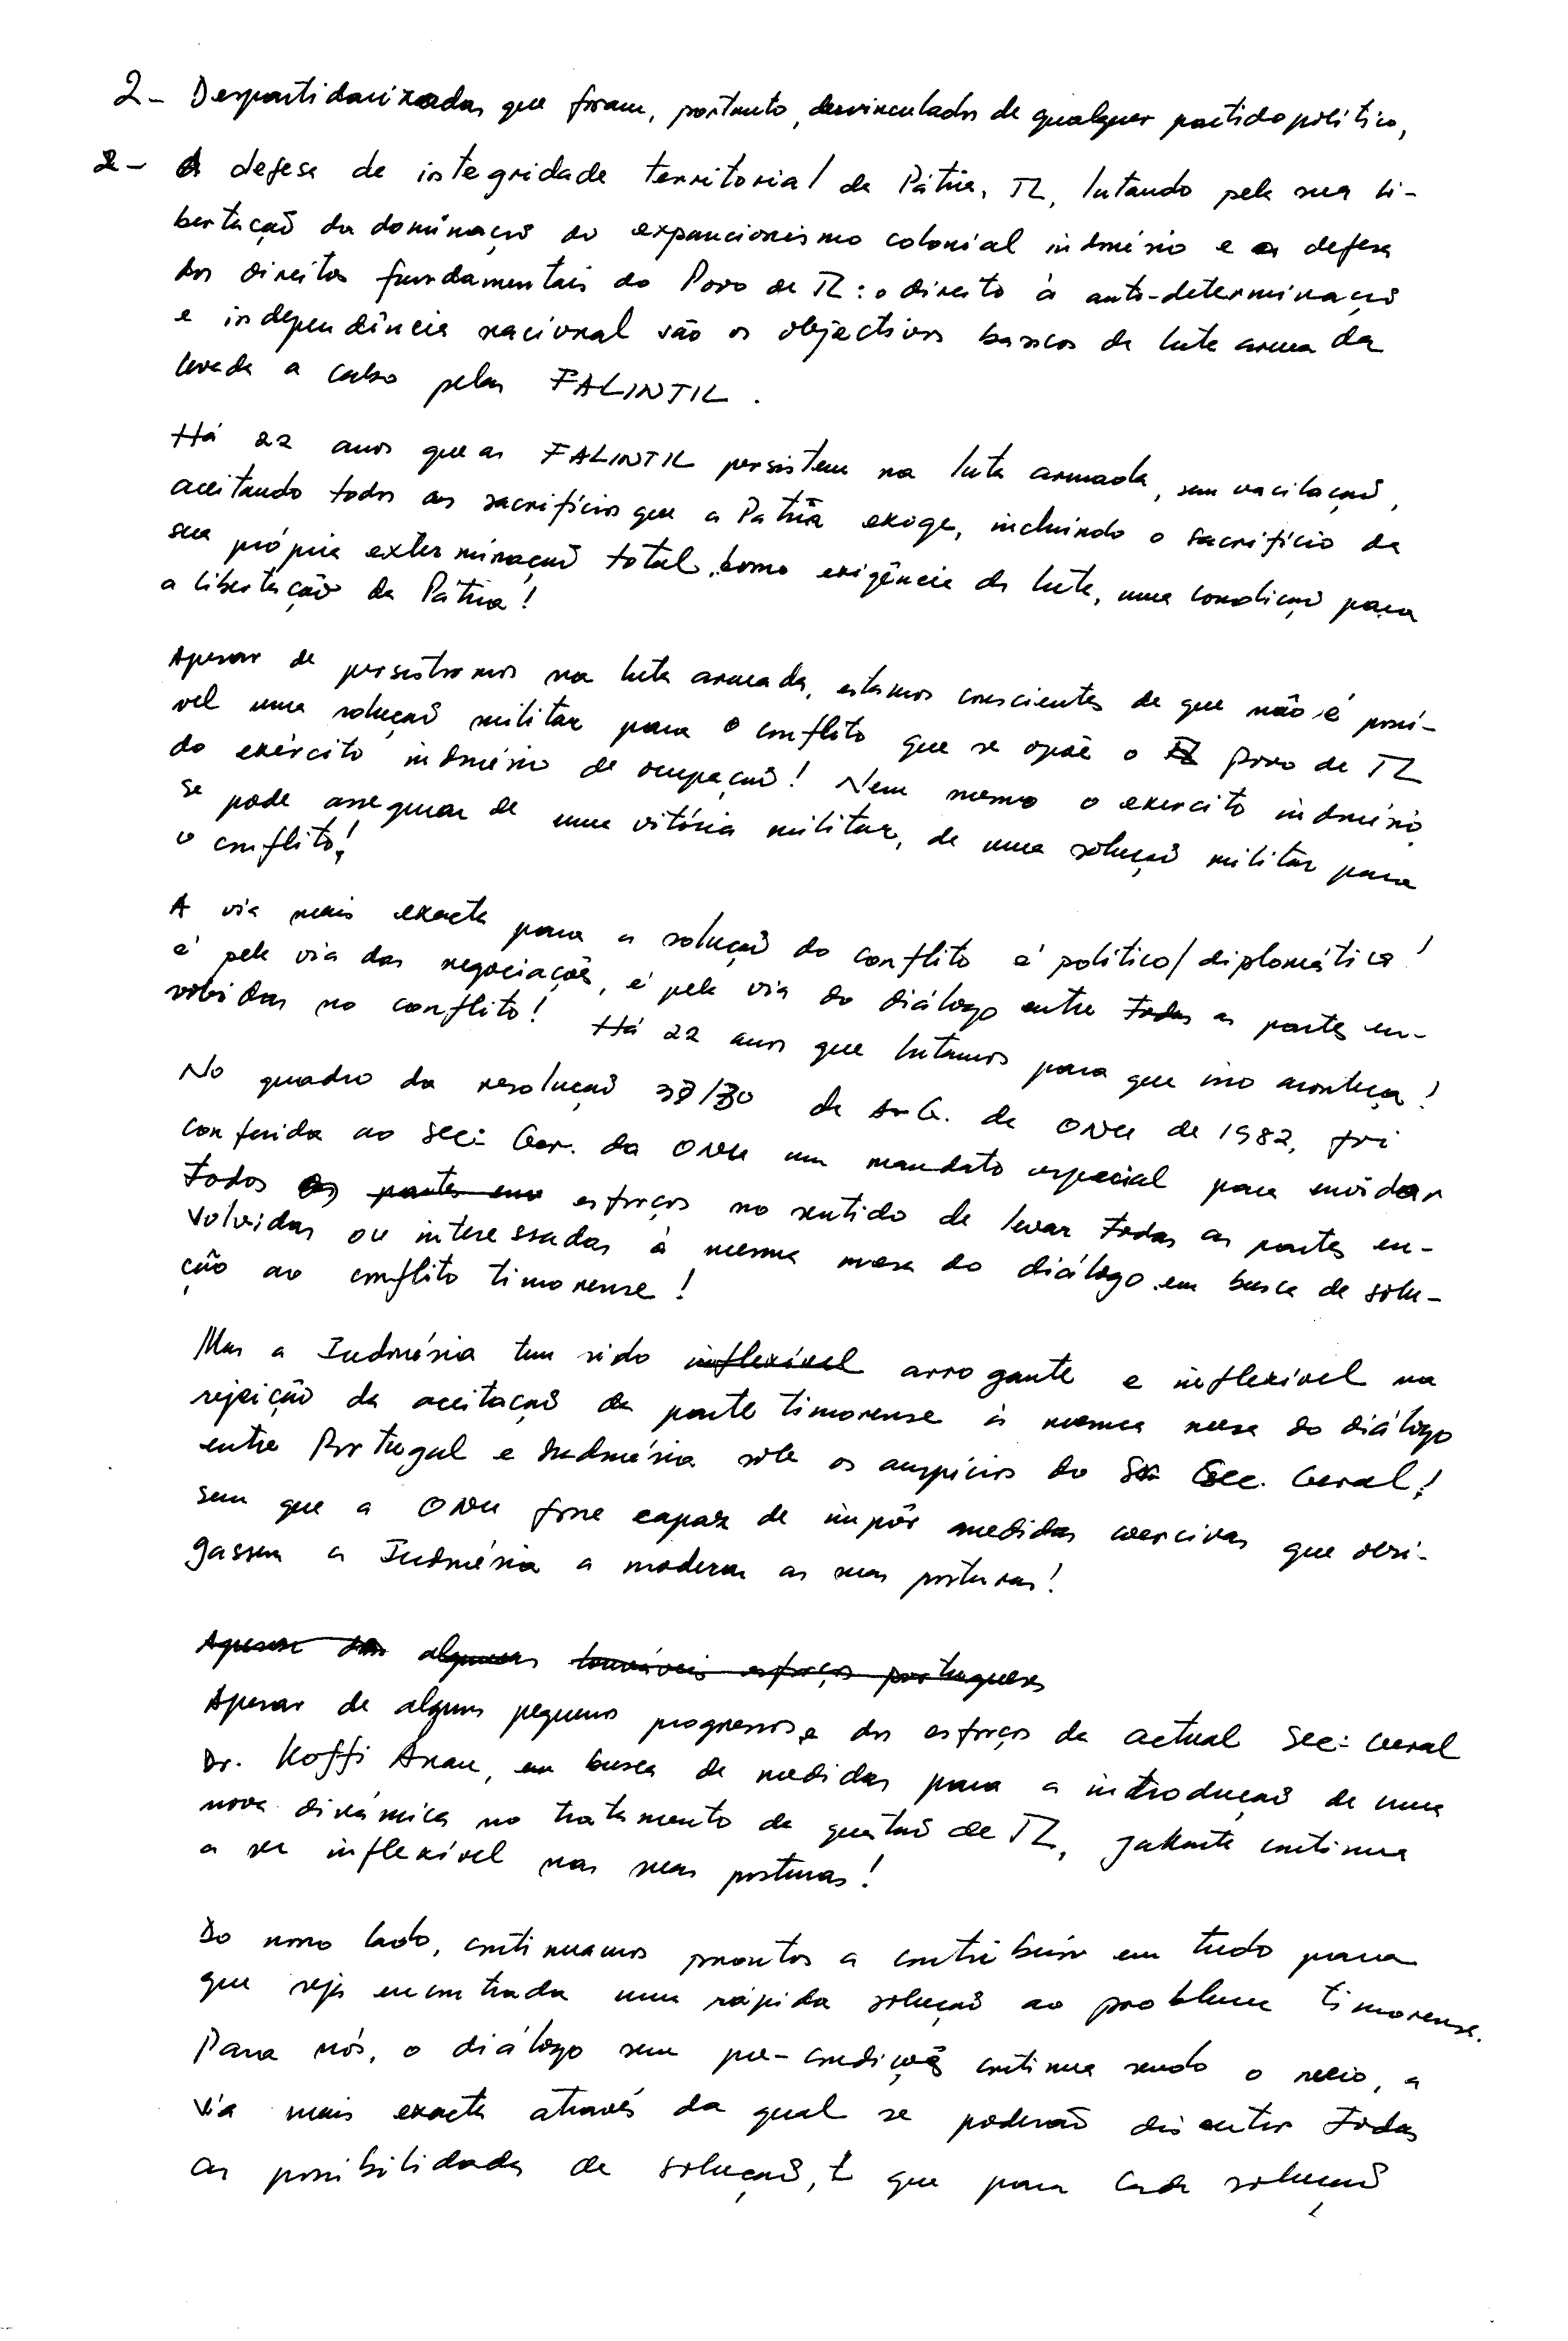 2- Despartidarizadas que foram, portanto, desvinculadas de qualquer partido político,
2- A defesa de integridade territorial da Pátria, TL, lutando pela sua li-
bertação da dominação do expancionismo colonial indonésio e a defesa
dos direitos fundamentais do Povo de TL: o direito à auto-determinação
e independência nacional são os objectivos basicos da luta armada
levada a cabo pelas FALINTIL.
Há 22 anos que as FALINTIL persistem na luta armada, sem vacilação,
aceitando todos os sacrifícios que a Pátria exige, incluindo o sacrifício da
sua própria exterminação total, como exigência da luta, uma condição para
a libertação da Pátria!
Apesar de persistirmos na luta armada, estamos conscientes de que não é possí-
vel uma solução militar para o conflito que se opõe o Povo de TL
do exército indonésio de ocupação! Nem mesmo o exercito indonésio
se pode assegurar de uma vitória militar, de uma solução militar para
o conflito!
A via mais exacta para a solução do conflito é político/diplomática!
é pela via das negociações, é pela via do diálogo entre todas as partes en-
volvidas no conflito! Há 22 anos que lutamos para que isso aconteça!
No quadro da resolução 37/30 da A.G. da ONU de 1982, foi
conferida ao Sec: Ger. da ONU um mandato especial para envidar
todos os partes env esforços no sentido de levar todas as partes en-
volvidas ou interessadas à mesma mesa do diálogo em busca de solu-
ção ao conflito timorense!
Mas a Indonésia tem sido inflexível arrogante e inflexível na
rejeição da aceitação da parte timorense à mesma mesa do diálogo
entre Portugal e Indonésia sob os auspícios do Sec. Geral!
sem que a ONU fosse capaz de impôr medidas coercivas que obri-
gassem a Indonésia a moderar as suas posturas!
Apesar dos algumas louváveis esforços portugueses
Apesar de alguns pequenos progressos e dos esforços da actual Sec: Geral
Dr. Koffi Anan, em busca de medidas para a introdução de uma
nova dinâmica no tratamento da questão de TL, Jakarta continua
a ser inflexível nas suas posturas!
Do nosso lado, continuamos prontos a contribuir em tudo para
que seja encontrada uma rápida solução ao problema timorense.
Para nós, o diálogo sem pre-condições continua sendo o meio, a
via mais exacta através da qual se poderão discutir todas
as possibilidades de solução, e que para cada solução